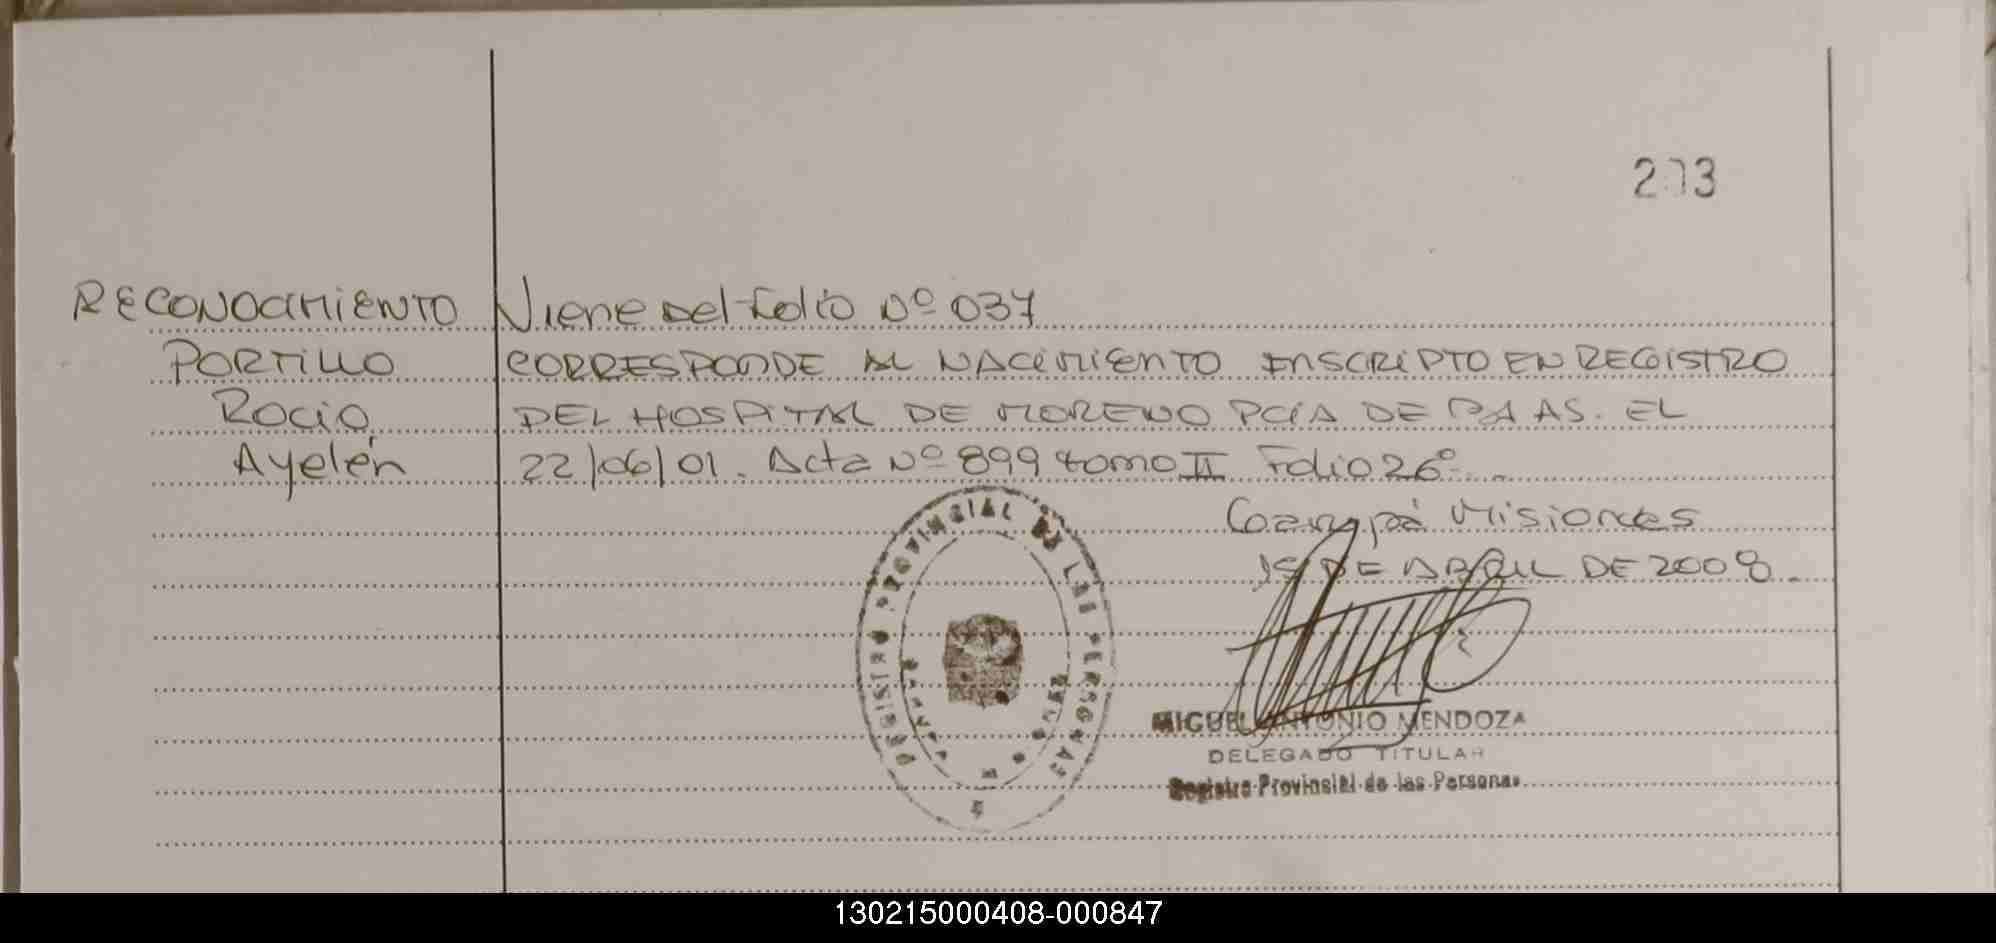 203
RECONOCIMIENTO Viene del Folio Nº 037
PORTILLO CORRESPONDE AL NACIMIENTO INSCRIPTO EN REGISTRO
ROCIO DEL HOSPITAL DE MORENO PCIA DE BA AS. EL
Ayelén 22/06/01. Acta Nº 899 tomo II Folio 26º.
Caanypá Misiones
15 DE ABRIL DE 2008.
REGISTRO PROVINCIAL DE LAS PERSONAS
MIGUEL ANTONIO MENDOZA
DELEGADO TITULAR
Registro Provincial de las Personas
130215000408-000847